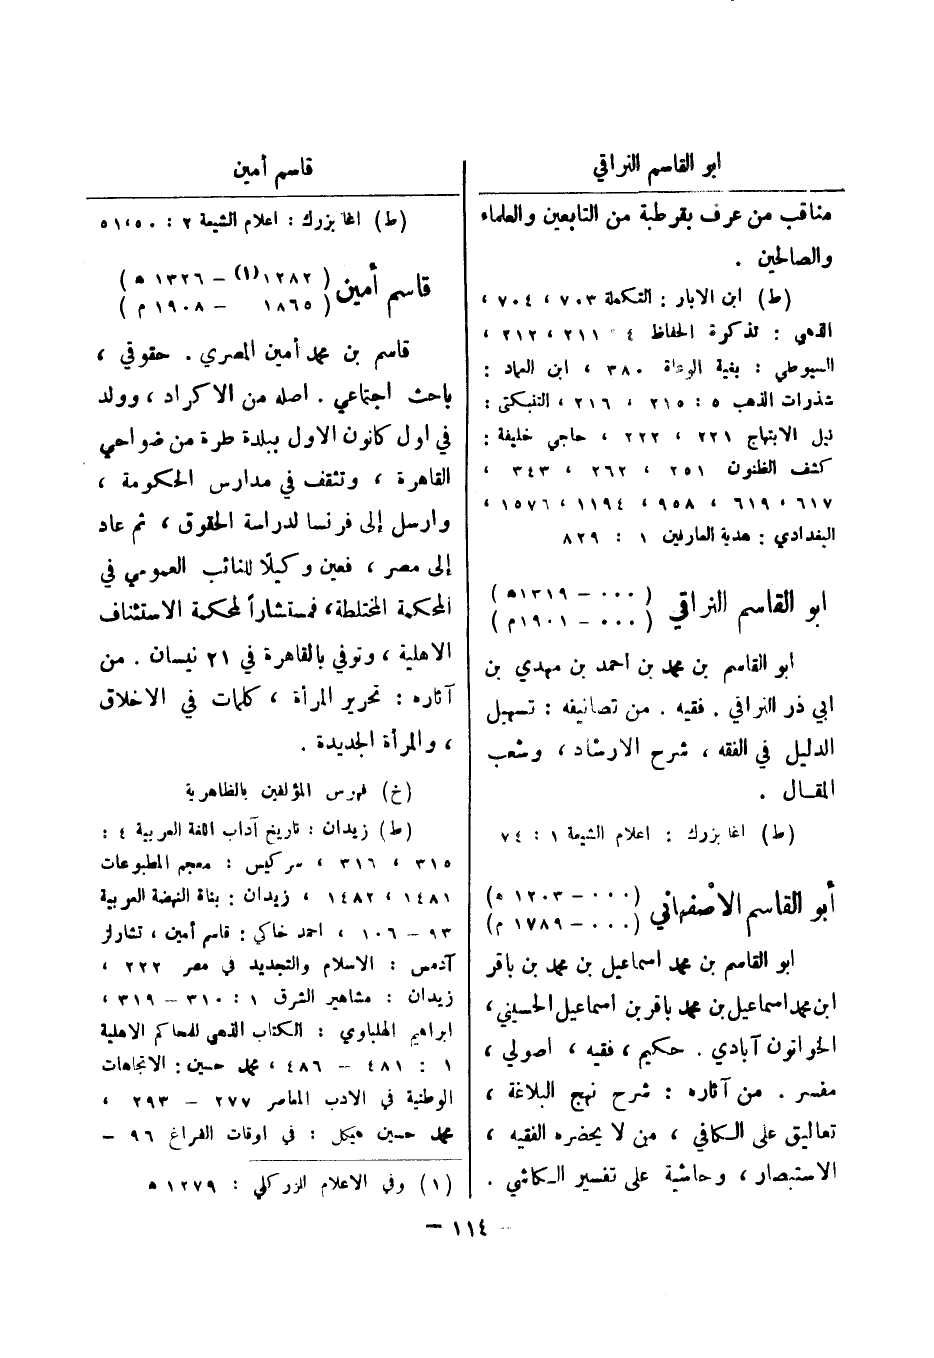 ابو القاسم النراقي
مناقب من عرف بقرطبة من التابعين والعلماء
والصالحين .
(ط) ابن الابار : التكملة ٧٠٣ ، ٧٠٤ ،
الذهبي : تذكرة الحفاظ ٤ : ٢١١ ، ٢١٢ ،
السيوطي : بغية الوعاة ٣٨٠ ، ابن العماد :
شذرات الذهب ٥ : ٢١٥ ، ٢١٦ ، التنبكتي :
نيل الابتهاج ٢٢١ ، ٢٢٢ ، حاجي خليفة :
كشف الظنون ٢٥١ ، ٢٦٢ ، ٣٤٣ ،
٦١٧ ، ٦١٩ ، ٩٥٨ ، ١١٩٤ ، ١٥٧٦ ،
البغدادي : هدية العارفين ١ : ٨٢٩
ابو القاسم النراقي ( ٠٠٠ – ١٣١٩ ه )
( ٠٠٠ – ١٩٠١ م )
ابو القاسم بن محمد بن أحمد بن مهدي بن
ابي ذر النراقي . فقيه . من تصانيفه : تسهيل
الدليل في الفقه ، شرح الارشاد ، وشعب
المقال .
(ط) اغا بزرك : اعلام الشيعة ١ : ٧٤
أبو القاسم الاصفهاني ( ٠٠٠ – ١٢٠٣ ه )
( ٠٠٠ – ١٧٨٩ م )
ابو القاسم بن محمد اسماعيل بن محمد بن باقر
ابن محمد اسماعيل بن محمد باقر بن اسماعيل الحسيني ،
الخواتون آبادي . حكيم ، فقيه ، اصولي ،
مفسر . من آثاره : شرح نهج البلاغة ،
تعاليق على الكافي ، من لا يحضره الفقيه ،
الاستبصار ، وحاشية على تفسير الكاشي .
قاسم أمين
(ط) اغا بزرك : اعلام الشيعة ٢ : ٥٠ ، ٥١
قاسم أمين ( ١٢٨٢ (١) – ١٣٢٦ ه )
( ١٨٦٥ – ١٩٠٨ م )
قاسم بن محمد أمين المصري . حقوقي ،
باحث اجتماعي . اصله من الاكراد ، وولد
في اول كانون الاول ببلدة طرة من ضواحي
القاهرة ، وتثقف في مدارس الحكومة ،
وارسل إلى فرنسا لدراسة الحقوق ، ثم عاد
إلى مصر ، فعين وكيلًا للنائب العمومي في
المحكمة المختلطة ، فمستشاراً لمحكمة الاستئناف
الاهلية ، وتوفي بالقاهرة في ٢١ نيسان . من
آثاره : تحرير المرأة ، كلمات في الاخلاق
، والمرأة الجديدة .
(خ) فهرس المؤلفين بالظاهرية
(ط) زيدان : تاريخ آداب اللغة العربية ٤ :
٣١٥ ، ٣١٦ ، سركيس : معجم المطبوعات
١٤٨١ ، ١٤٨٢ ، زيدان : بناة النهضة العربية
٩٣ – ١٠٦ ، احمد خاكي : قاسم أمين ، تشارلز
آدمس : الاسلام والتجديد في مصر ٢٢٢ ،
زيدان : مشاهير الشرق ١ : ٣١٠ – ٣١٩ ،
ابراهيم الهلباوي : الكتاب الذهبي للمحاكم الاهلية
١ : ٤٨١ – ٤٨٦ ، محمد حسين : الاتجاهات
الوطنية في الادب المعاصر ٢٧٧ – ٢٩٣ ،
محمد حسين هيكل : في اوقات الفراغ ٩٦ –
(١) وفي الاعلام للزركلي : ١٢٧٩ ه
– ١١٤ –